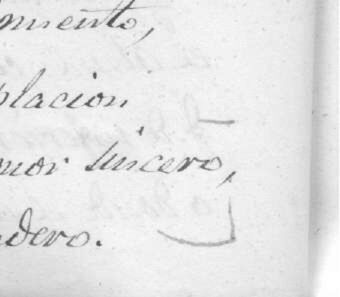 miento,
placion
mor sincero,
dero.